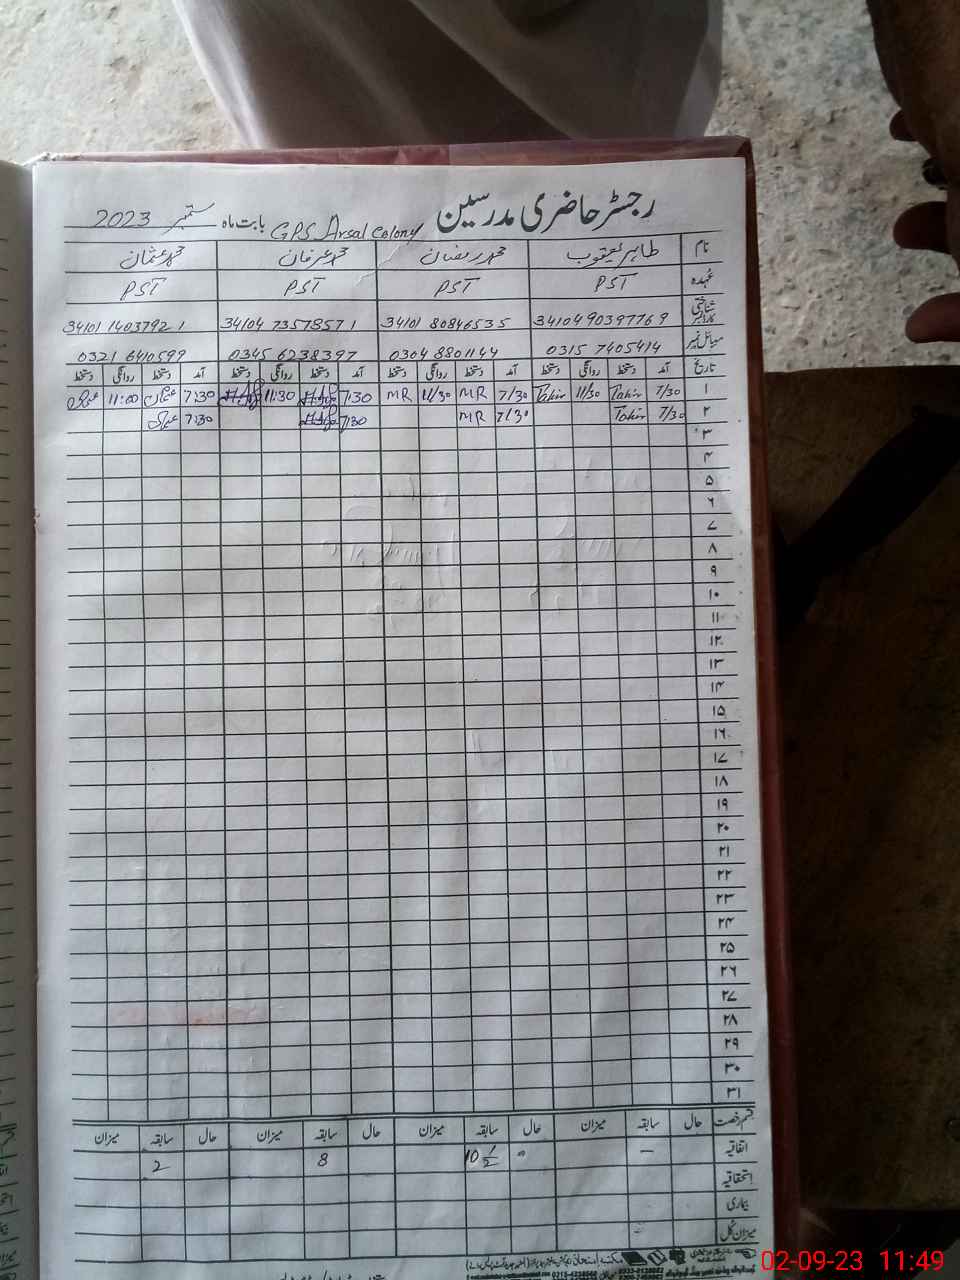 رجسٹر حاضری مدرسین GPS Arsal Colony بابت ماہ ستمبر 2023
نام طاہر یعقوب محمد رمضان محمد عرفان محمد عثمان
عُہدہ PST PST PST PST
شناختی کارڈ نمبر 34104 90397769 34101 80846535 34104 7357857 1 34101 1403792 1
موبائل نمبر 0315 7405414 0304 8801144 0345 6238397 0321 6410599
تاریخ آمد دستخط روانگی دستخط آمد دستخط روانگی دستخط آمد دستخط روانگی دستخط آمد دستخط روانگی دستخط
۱ 7/30 Tahir 11/30 Tahir 7/30 MR 11/30 MR 7:30 11:30 7:30 عثمان 11:00 عثمان
۲ 7/30 Tahir 7/30 MR 7:30 7:30 عثمان
۳
۴
۵
۶
۷
۸
۹
۱۰
۱۱
۱۲
۱۳
۱۴
۱۵
۱۶
۱۷
۱۸
۱۹
۲۰
۲۱
۲۲
۲۳
۲۴
۲۵
۲۶
۲۷
۲۸
۲۹
۳۰
۳۱
قسم رخصت حال سابقہ میزان حال سابقہ میزان حال سابقہ میزان حال سابقہ میزان
اتفاقیہ – 0 10 1/2 8 2
استحقاقیہ
بیماری
میزان کل –
02-09-23 11:49